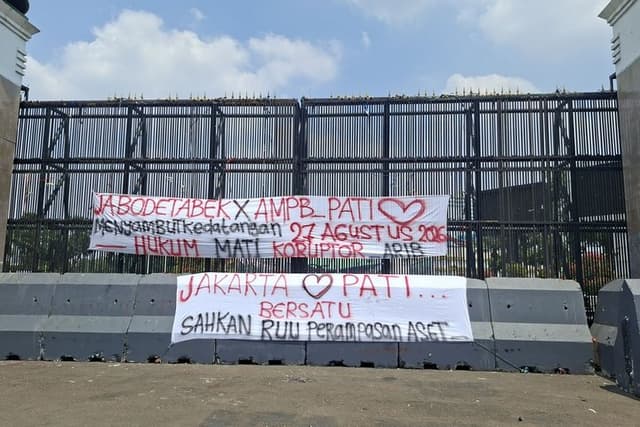 JABODETABEK X AMPB_PATI ♡
MENYAMBUT KEDATANGAN 27 AGUSTUS 2026
— HUKUM MATI KORUPTOR ARIB
JAKARTA ♡ PATI...
BERSATU
SAHKAN RUU PERAMPASAN ASET